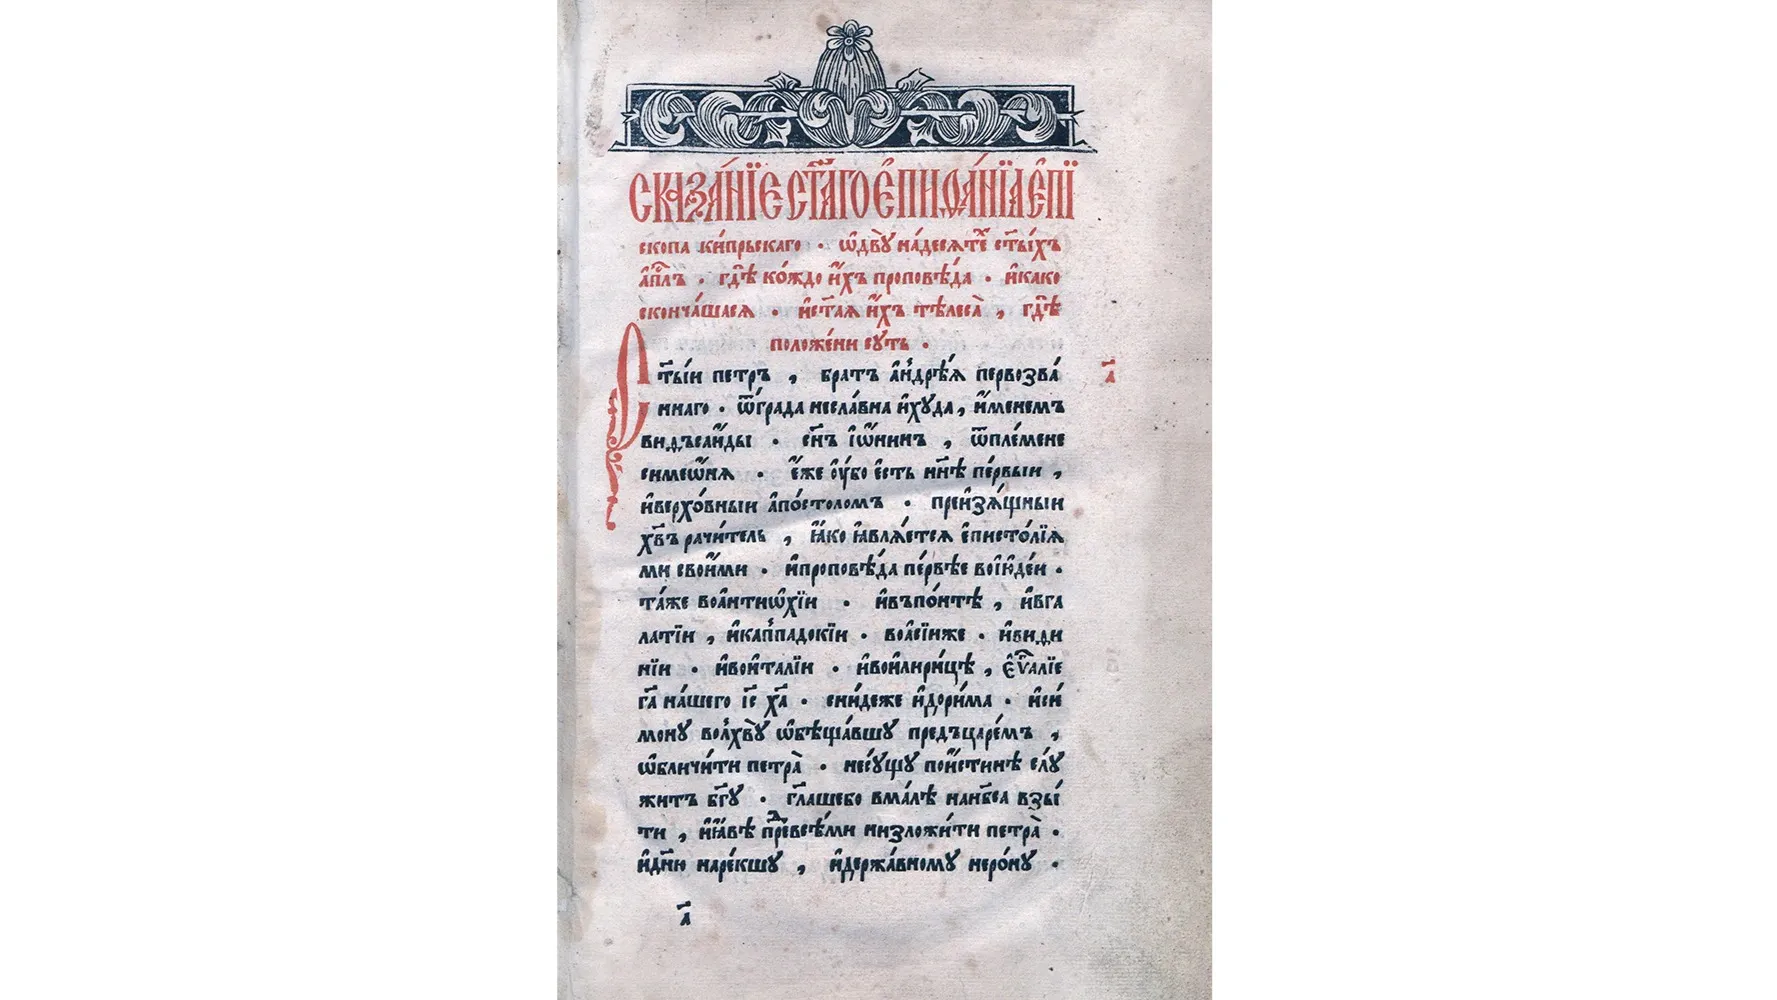 СКАЗА́НЇЕ СТ҃А́ГО Е҆ПИѲА́НЇѦ Е҆ПЇ
скопа ки́прьскаго · ѡ҆двꙋ̀ на́десѧте ст҃ы́хъ
а҆пⷭ҇лъ · гдѣ̀ ко́ждо и҆́хъ проповѣ́да · и҆како
сконча́шасѧ · и҆ст҃аѧ и҆́хъ тѣлеса̀ , гдѣ̀
положе́ни сꙋть ·
Ст҃ы́и петръ , братъ а҆нд̾рѣ́ѧ первозва́
ннаго · ѿгра́да несла́вна и҆хꙋда , и҆́менемъ
видъсаи҆́ды · сн҃ъ і҆ѡ́нинъ , ѿпле́мене
симеѡ́нѧ · и҆́же ᲂу҆́бо є҆сть нн҃ѣ пе́рвыи ,
и҆верхо́вныи а҆по́столомъ · преи҆зѧ́щныи
хв҃ъ рачи́тель , ꙗ҆́ко ꙗ҆влѧ́етсѧ є҆писто́лїѧ
ми свои҆́ми · и҆проповѣ́да пе́рвѣе вои҆ю҆де́и ·
та́же воа҆нтиѡ҆хі́и · и҆въпо́нтѣ , и҆вга
ла́тїи , и҆кап̾падокі́и · воа҆сі́иже · и҆види
ні́и · и҆вои҆та́лїи · и҆вои҆лири́цѣ , є҆ѵⷢ҇алїе
гⷭ҇а на́шего і҆с҃ х҃а · сни́деже и҆дори́ма · и҆си́
монꙋ вол̾хвꙋ̀ ѡ҆бѣща́вшꙋ предъцаре́мъ ,
ѡ҆бличи́ти петра̀ · несꙋ́щꙋ пои҆́стинѣ слꙋ́
жить бг҃ꙋ · гл҃ашебо вма́лѣ нанб҃са взы́
ти , и҆ꙗ҆́вѣ преⷣвсѣ́ми низложи́ти петра̀ ·
и҆дн҃ю наре́кшꙋ , и҆держа́вномꙋ неро́нꙋ ·
а҃
а҃